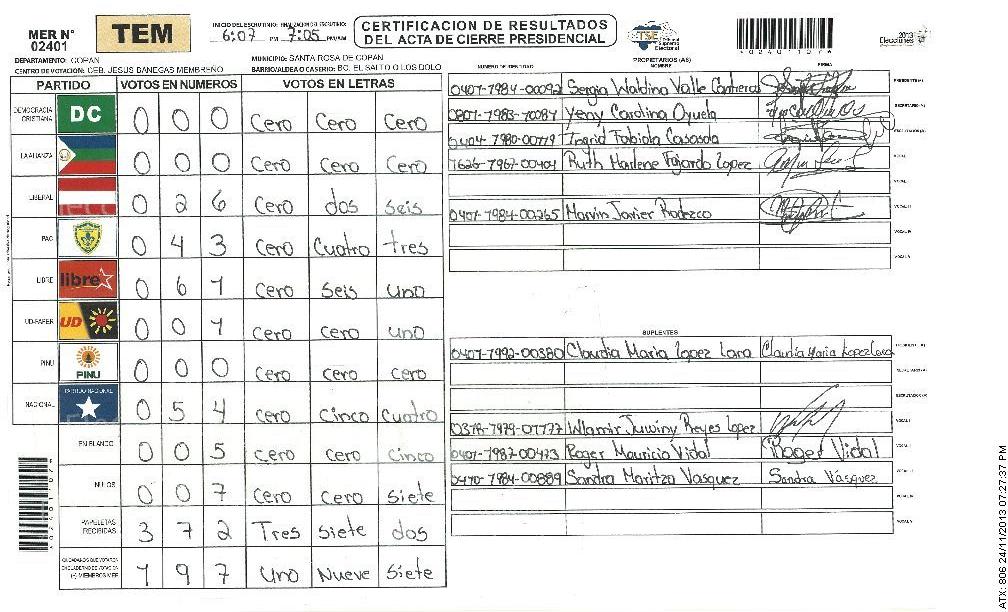 MER N° 02401
TEM
INICIO DEL ESCRUTINIO: 6:07 PM FINALIZACION DEL ESCRUTINIO: 7:05 PM/AM
CERTIFICACION DE RESULTADOS
DEL ACTA DE CIERRE PRESIDENCIAL
TSE Tribunal Supremo Electoral
2013 Elecciones
DEPARTAMENTO: COPAN
MUNICIPIO: SANTA ROSA DE COPAN
CENTRO DE VOTACIÓN: CEB. JESUS BANEGAS MEMBREÑO
BARRIO/ALDEA O CASERIO: BO. EL SALTO O LOS DOLO
PARTIDO VOTOS EN NUMEROS VOTOS EN LETRAS
DEMOCRACIA CRISTIANA DC 0 0 0 Cero Cero Cero
LA ALIANZA 0 0 0 Cero Cero Cero
LIBERAL 0 2 6 Cero dos seis
PAC 0 4 3 Cero Cuatro tres
LIBRE libre 0 6 1 Cero Seis uno
UD-FAPER UD 0 0 1 Cero cero uno
PINU PINU 0 0 0 Cero cero cero
NACIONAL PARTIDO NACIONAL 0 5 4 Cero Cinco Cuatro
EN BLANCO 0 0 5 Cero Cero Cinco
NULOS 0 0 7 Cero Cero Siete
PAPELETAS RECIBIDAS 3 7 2 Tres siete dos
1 9 7 Uno Nueve Siete
PROPIETARIOS (AS)
NUMERO DE IDENTIDAD NOMBRE FIRMA
0401-1984-00092 Sergia Waldina Valle Contreras
0801-1983-10084 Yeny Carolina Oyuela
0404-1980-00119 Ingrid Fabiola Casasola
1626-1967-00401 Ruth Marlene Fajardo Lopez
0401-1984-00265 Marvin Javier
SUPLENTES
0401-1992-00380 Claudia Maria Lopez Lara Claudia Maria Lopez Lara
Reyes Lopez
0401-1987-00473 Roger Mauricio Vidal Roger Vidal
0410-1984-00889 Sandra Maritza Vasquez Sandra Vásquez
ATX: 806 24/11/2013 07:27:37 PM